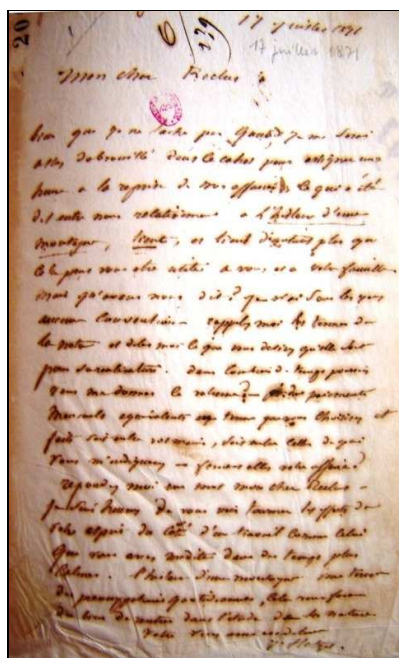 20
17 juillet 1871
239
17 juillet 1871
Mon cher Reclus
bien que je ne sache pas quand je me serai
assez débrouillé dans le cahos pour assigner une
heure à la reprise de nos affaires, ce qui a été
dit entre nous relativement à l'histoire d'une
montagne, tient, et tient d'autant plus que
cela peut vous être utile à vous et à votre famille
mais qu'avons nous dit? je n'ai sous les yeux
aucune convention rappelez moi les termes de
la note et dites moi ce que vous désirez qu'elle soit
dans combien de temps pourriez
vous me donner le volume? des paiements
mensuels équivalents au temps que vous choisirez et
fait soit entre vos mains, soit entre celles de qui
vous m'indiquerez – feraient-elles votre affaire?
répondez moi un mot mon cher Reclus –
je serai heureux de vous voir tourner les efforts de
votre esprit du côté d'un travail comme celui
que vous avez médité dans des temps plus
calmes. l'histoire d'une montagne vous tirera
de préoccupations quotidiennes, cela vous fera
du bien de rentrer dans l'étude de la nature.
Votre bien
J. Hetzel